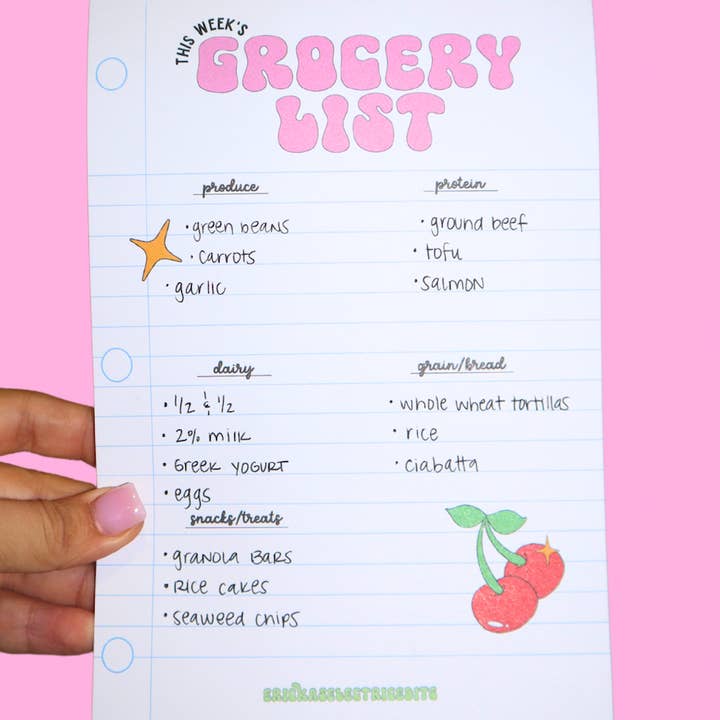 THIS WEEK'S
GROCERY
LIST
produce
• green beans
• carrots
• garlic
protein
• ground beef
• tofu
• salmon
dairy
• 1/2 & 1/2
• 2% milk
• Greek YOGURT
• eggs
grain/bread
• whole wheat tortillas
• rice
• ciabatta
snacks/treats
• granola bars
• Rice cakes
• seaweed chips